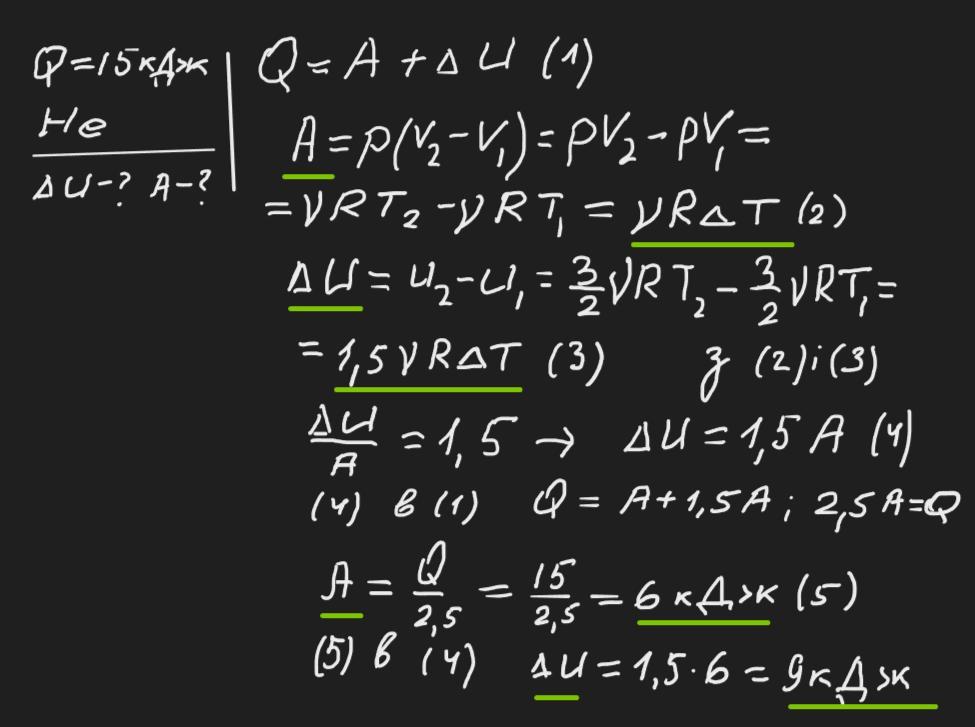 Q=15кДж
He
ΔU-? A-?
Q = A + ΔU (1)
A = p(V₂-V₁) = pV₂ - pV₁ =
= νRT₂ - νRT₁ = νRΔT (2)
ΔU = U₂-U₁ = 3/2 νRT₂ - 3/2 νRT₁ =
= 1,5 νRΔT (3) з (2) і (3)
ΔU/A = 1,5 → ΔU = 1,5 A (4)
(4) в (1) Q = A+1,5A; 2,5A=Q
A = Q/2,5 = 15/2,5 = 6 кДж (5)
(5) в (4) ΔU = 1,5·6 = 9кДж